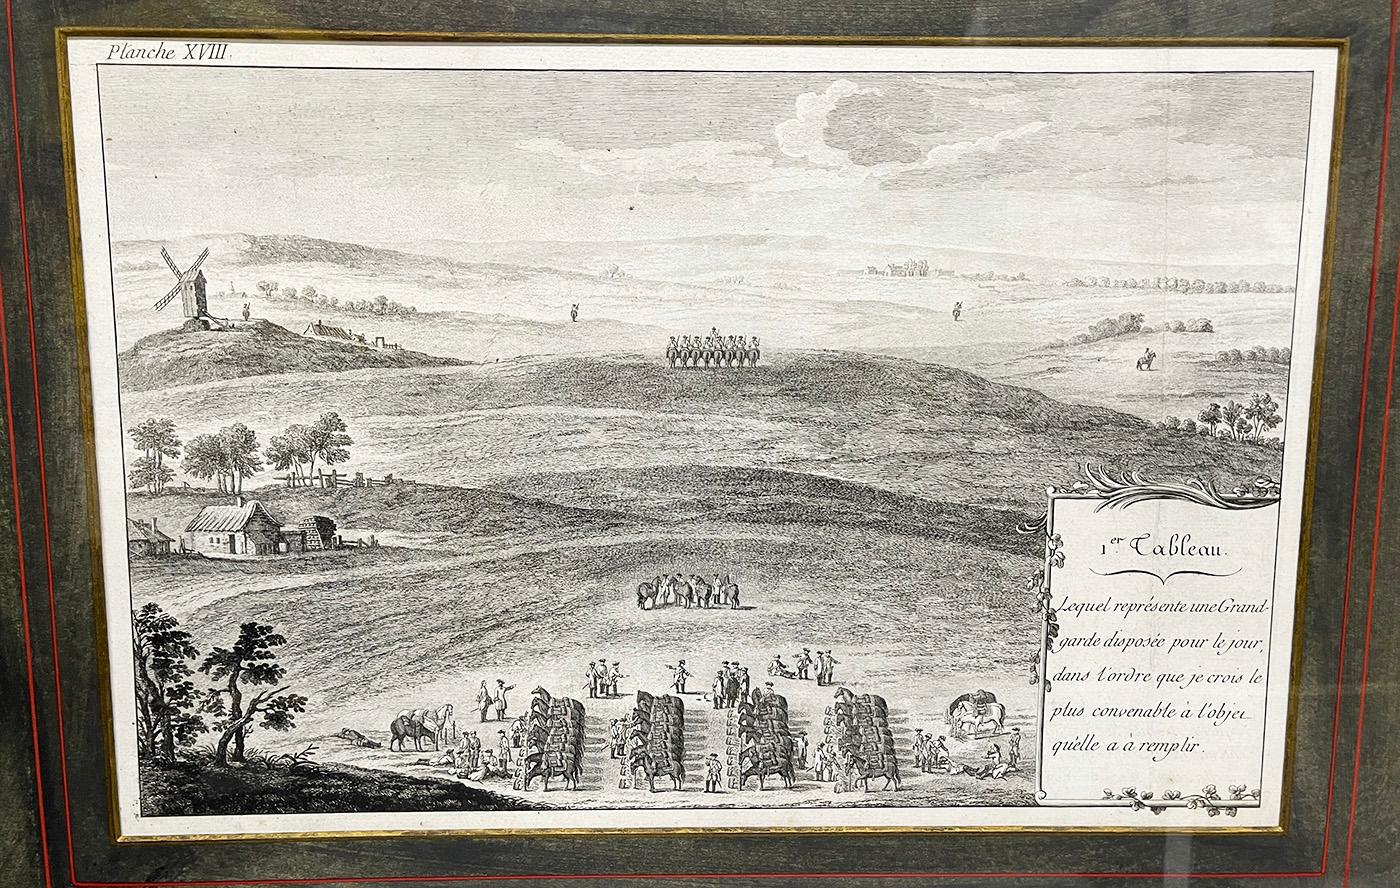 Planche XVIII.
1er Tableau.
Lequel représente une Grand-
garde disposée pour le jour,
dans l'ordre que je crois le
plus convenable à l'objet
qu'elle a à remplir.